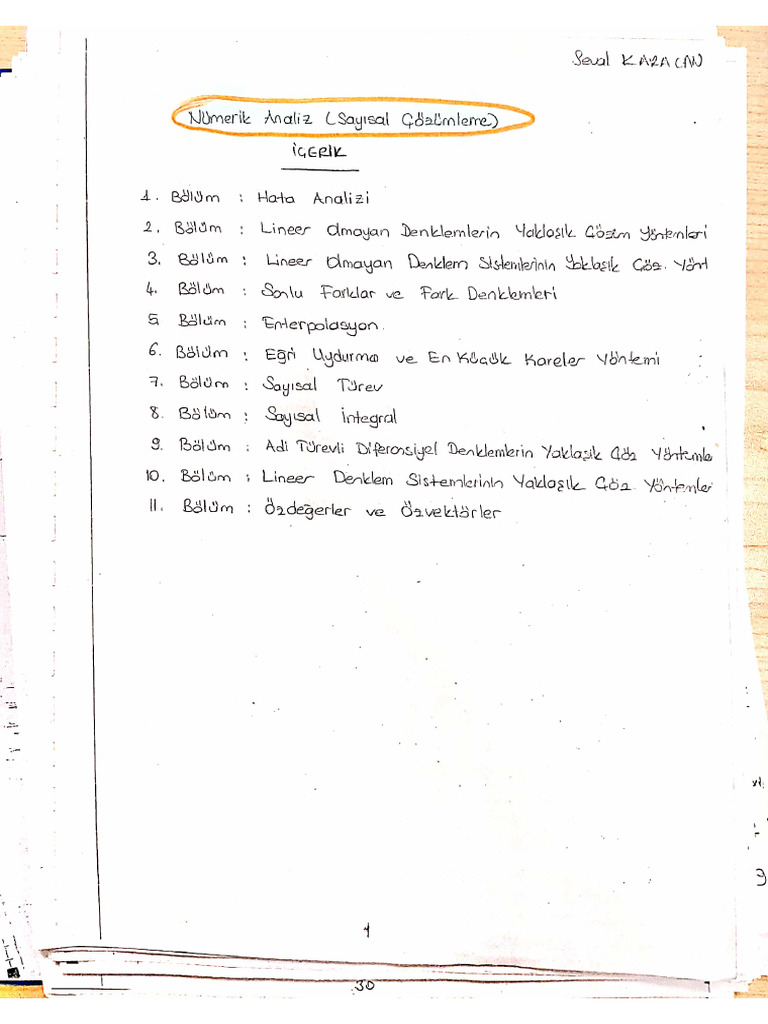 Seval KARACAN
Nümerik Analiz (Sayısal Çözümleme)
İÇERİK
1. Bölüm : Hata Analizi
2. Bölüm : Lineer Olmayan Denklemlerin Yaklaşık Çözüm Yöntemleri
3. Bölüm : Lineer Olmayan Denklem Sistemlerinin Yaklaşık Çöz. Yönt
4. Bölüm : Sonlu Farklar ve Fark Denklemleri
5. Bölüm : Enterpolasyon
6. Bölüm : Eğri Uydurma ve En Küçük Kareler Yöntemi
7. Bölüm : Sayısal Türev
8. Bölüm : Sayısal İntegral
9. Bölüm : Adi Türevli Diferensiyel Denklemlerin Yaklaşık Çöz Yöntemle
10. Bölüm : Lineer Denklem Sistemlerinin Yaklaşık Çöz. Yöntemler
11. Bölüm : Özdeğerler ve Özvektörler
1
30